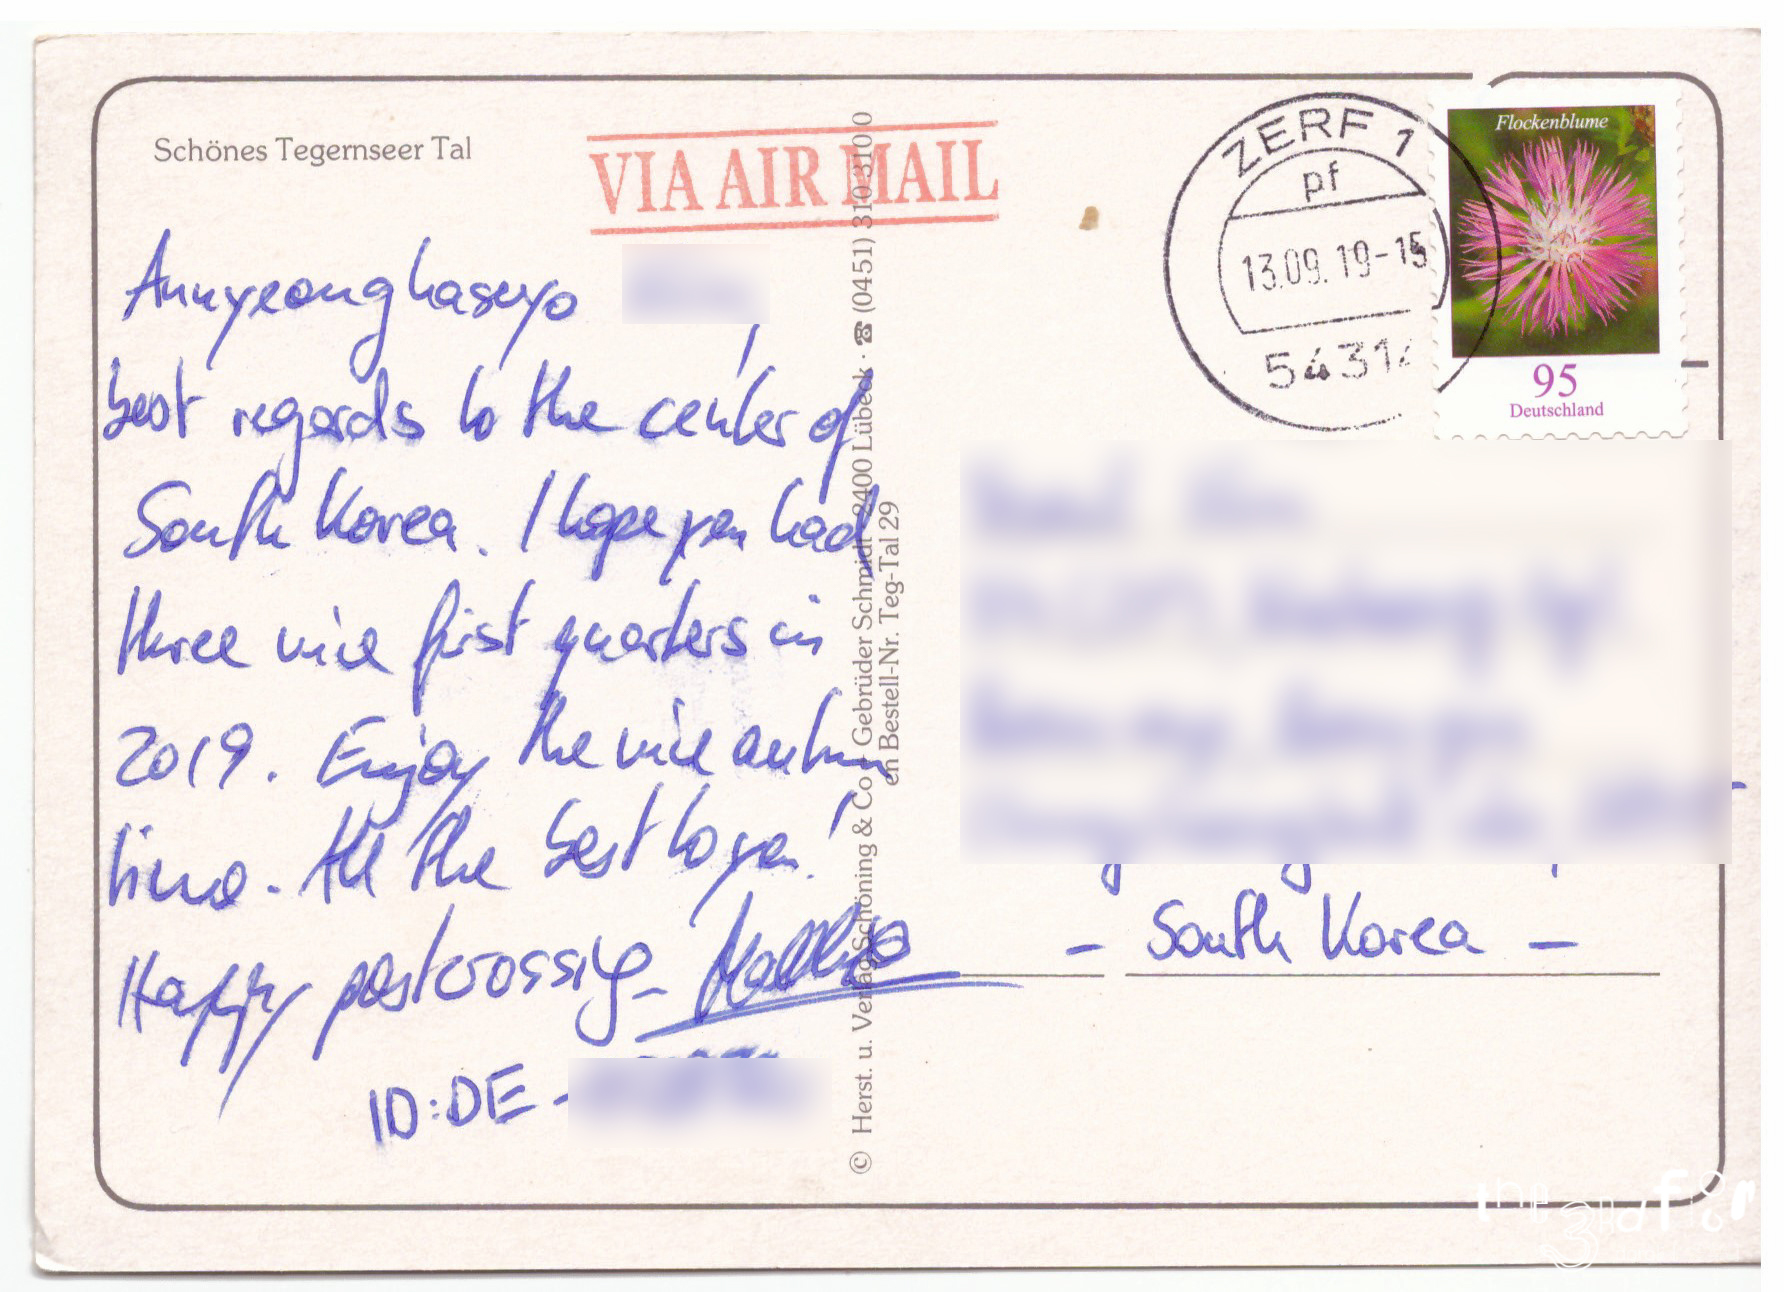 Schönes Tegernseer Tal
VIA AIR MAIL
ZERF 1
pf
13.09.19-15
5431
Flockenblume
95
Deutschland
Annyeonghaseyo ,
best regards to the center of
South Korea. I hope you had
three nice first quarters in
2019. Enjoy the nice autumn
time. All the best to you!
Happy postcrossing-
ID:DE-
- South Korea -
© Herst. u. Verlag Schöning & Co + Gebrüder Schmidt · 2400 Lübeck · ☎ (0451) 310 310 0
en Bestell-Nr. Teg-Tal 29
the 3rd floor